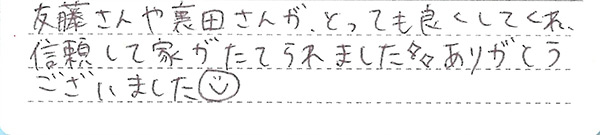 友藤さんや裏田さんが、とっても良くしてくれ、
信頼して家がたてられました。ありがとう
ございました